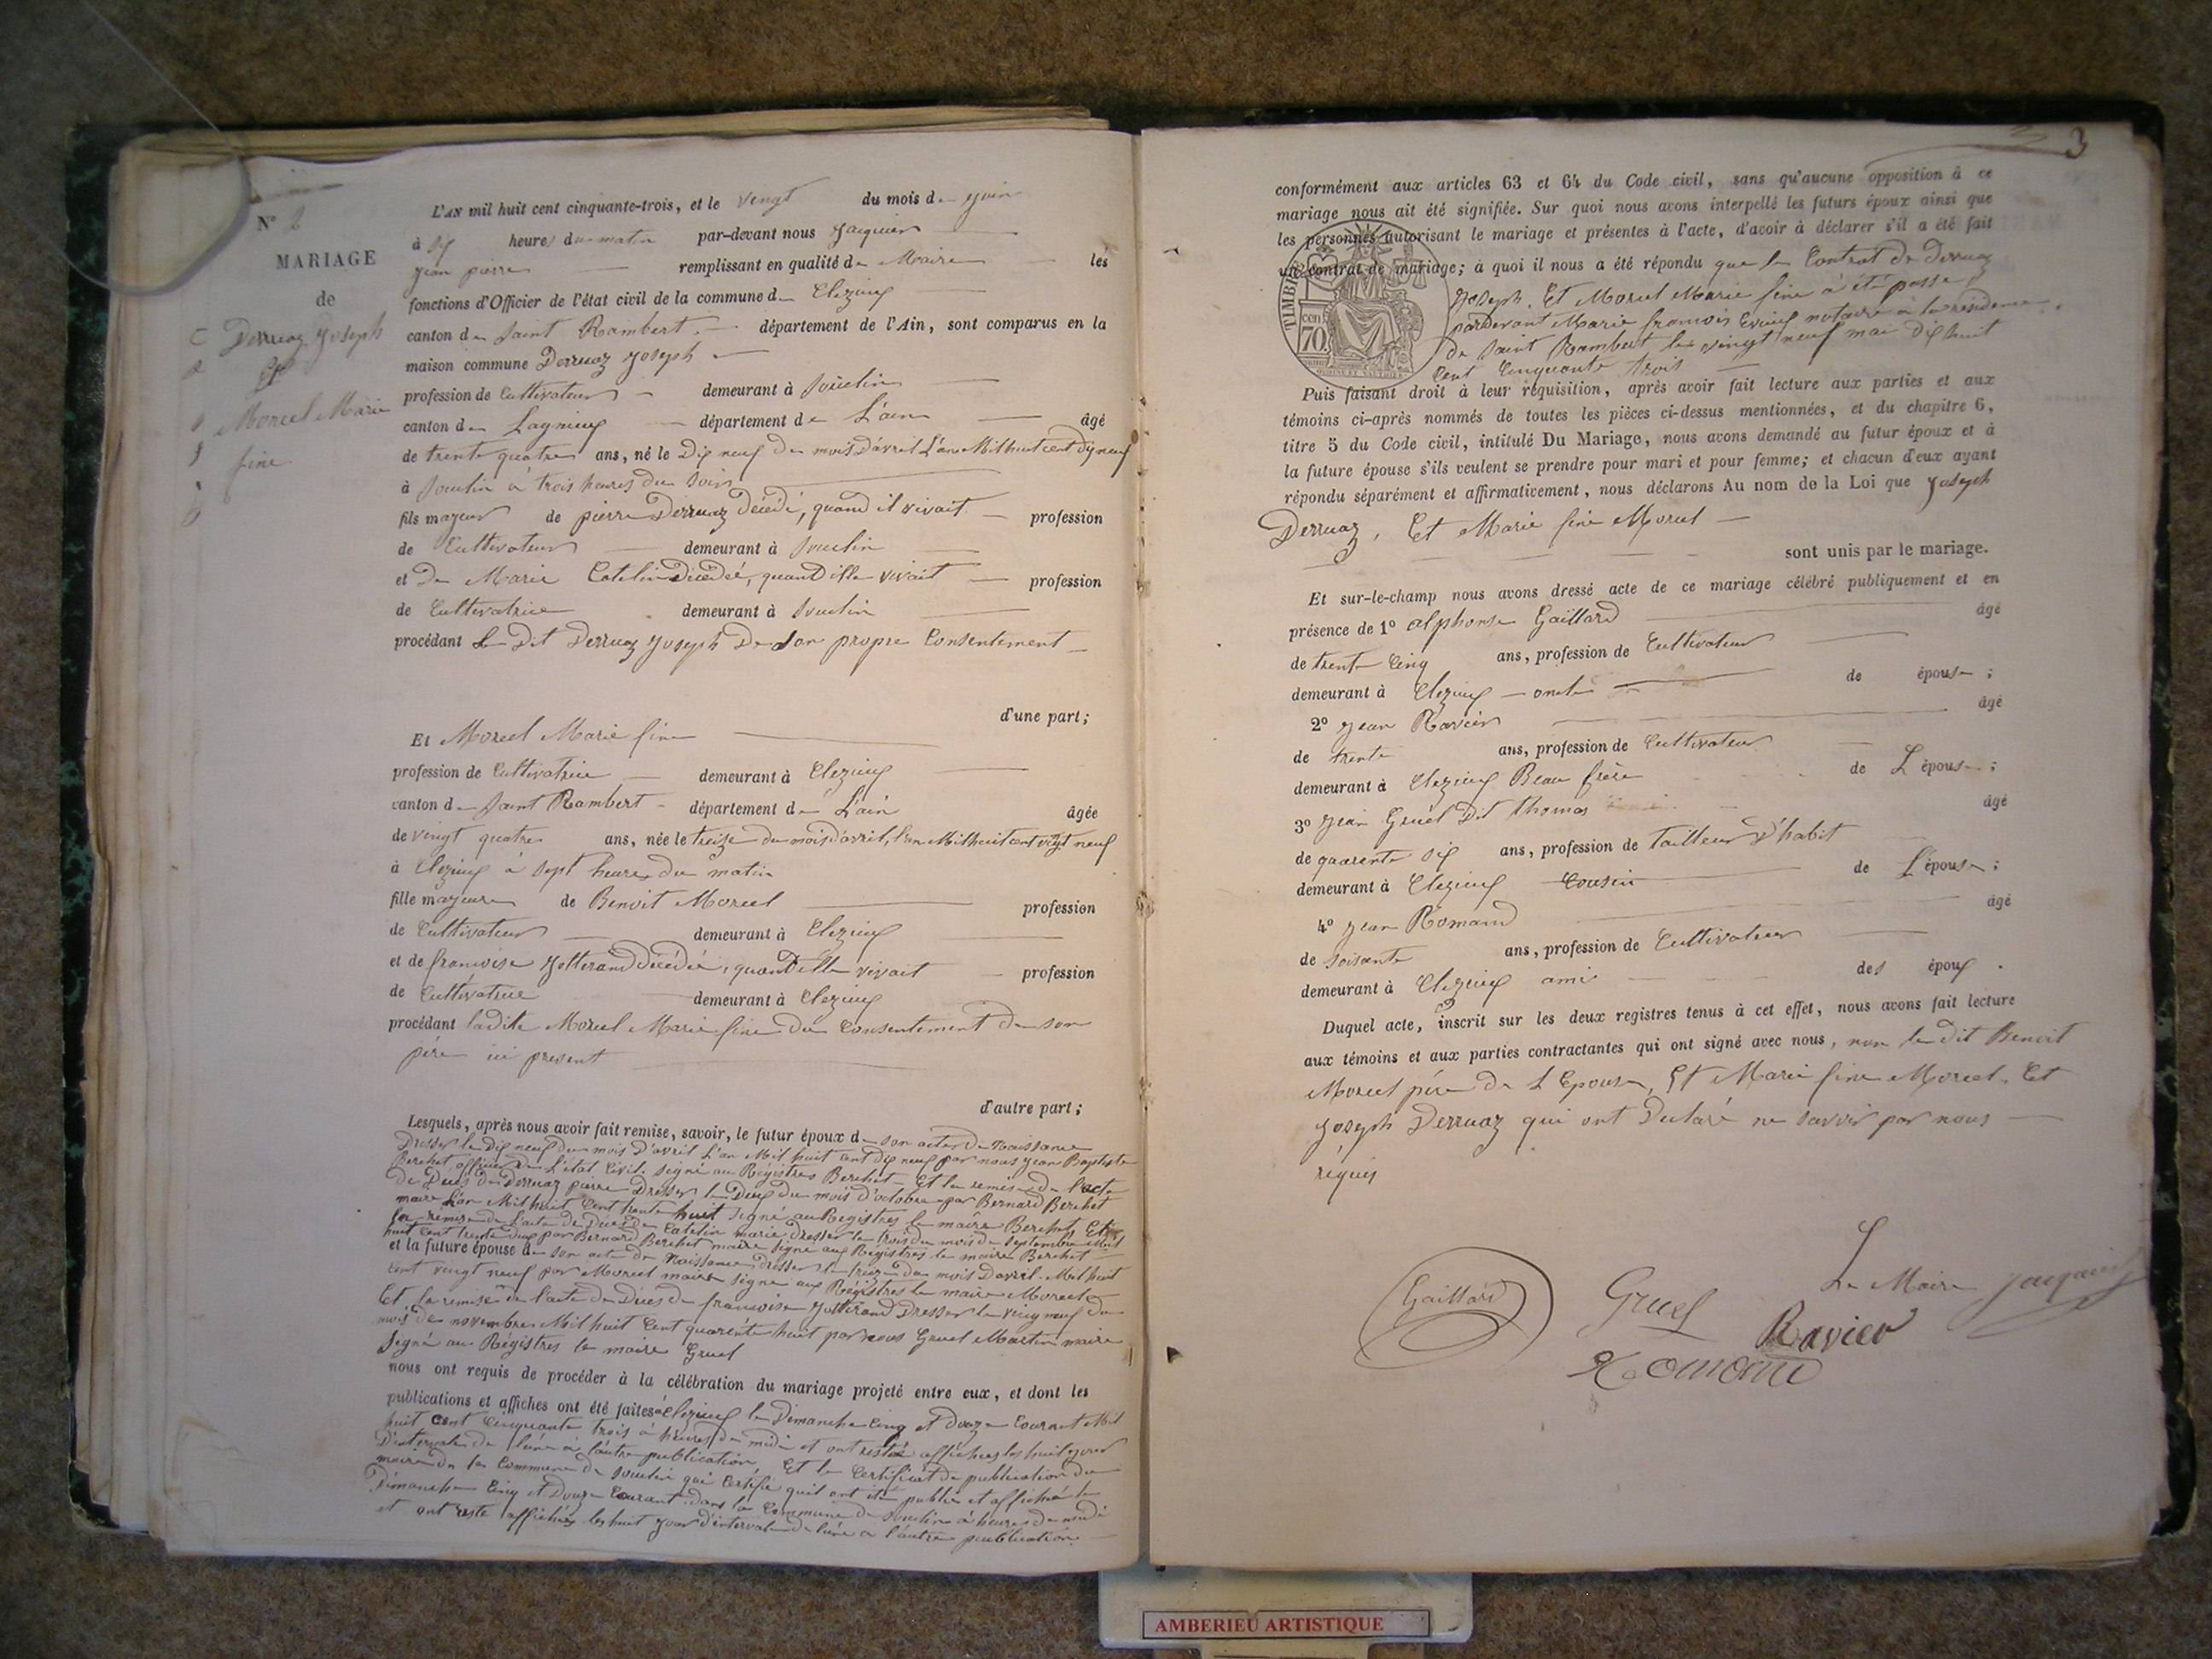 N° 2
MARIAGE
de
Derruaz Joseph
Et
Morcel Marie
fine
L'AN mil huit cent cinquante-trois, et le vingt du mois de juin
à six heures du matin par-devant nous Jacquier
Jean pierre remplissant en qualité de Maire les
fonctions d'Officier de l'état civil de la commune de Clezieux
canton de Saint Rambert département de l'Ain, sont comparus en la
maison commune Derruaz Joseph
profession de Cultivateur demeurant à Souclin
canton de Lagnieux département de L'ain âgé
de trente quatre ans, né le Dix neuf du mois d'avril L'an Mil huit cent dix neuf
à Souclin à trois heures du soir
fils majeur de pierre Derruaz Décédé, quand il vivait profession
de Cultivateur demeurant à Souclin
et De Marie Catelin Décédée, quand elle vivait profession
de Cultivatrice demeurant à Souclin
procédant Le Dit Derruaz Joseph De son propre Consentement
d'une part;
Et Morcel Marie fine
profession de Cultivatrice demeurant à Clezieux
canton de Saint Rambert département de L'ain âgée
de vingt quatre ans, née le treize du mois d'avril, l'an Mil huit cent vingt neuf
à Clezieux à sept heures du matin
fille majeure de Benoit Morcel profession
de Cultivateur demeurant à Clezieux
et de francoise Jolterand décédée, quand elle vivait profession
de Cultivatrice demeurant à Clezieux
procédant ladite Morcel Marie fine du Consentement de son
père ici present
d'autre part;
Lesquels, après nous avoir fait remise, savoir, le futur époux de son acte de Naissance
Dresser le dix neuf du mois D'avril L'an Mil huit cent Dix neuf par nous Jean Baptiste
Berchet officier de L'état Civil. Signé au Régistres Berchet Et la remise de l'acte
de Décès de Derruaz pierre Dresser le Deux du mois d'octobre par Bernard Berchet
maire L'an Mil huit Cent trente huit signé au Registres le maire Berchet Et
la remise de L'acte de Décès de Catelin marie dresser le trois du mois de Septembre Mil
huit Cent trente deux par Bernard Berchet maire signé aux Régistres le maire Berchet
et la future épouse de son acte de Naissance dresser le treize du mois D'avril Mil huit
cent vingt neuf par Morcel maire signé aux Régistres le maire Morcel
Et la remise de l'acte de Décès de francoise Jolterand Dresser le vingt neuf du
mois de novembre Mil huit Cent quarente huit par nous Gruel Martin maire
Signé au Régistres le maire Gruel
nous ont requis de procéder à la célébration du mariage projeté entre eux, et dont les
publications et affiches ont été faites à Clezieux le Dimanche Cinq et Douze Courant Mil
huit cent Cinquante trois à heures de midi et ont resté affichées les huit jours
D'intervale de l'une à l'autre publication, Et le Certificat de publication du
maire de la Commune de Souclin qui Certifie qu'il ont été publié et affiché le
Dimanche Cinq et Douze Courant dans la Commune de Souclin à heures de midi
et ont resté affichées les huit jours d'intervale de l'une a l'autre publication.
3
conformément aux articles 63 et 64 du Code civil, sans qu'aucune opposition à ce
mariage nous ait été signifiée. Sur quoi nous avons interpellé les futurs époux ainsi que
les personnes autorisant le mariage et présentes à l'acte, d'avoir à déclarer s'il a été fait
un contrat de mariage; à quoi il nous a été répondu que le Contrat de Derruaz
Joseph. Et Morcel Marie fine à été passé
pardevant Marie francois notaire à la résidence
de Saint Rambert le vingt neuf mai Dix huit
Cent Cinquante trois
TIMBRE
cen
70.
Puis faisant droit à leur réquisition, après avoir fait lecture aux parties et aux
témoins ci-après nommés de toutes les pièces ci-dessus mentionnées, et du chapitre 6,
titre 5 du Code civil, intitulé Du Mariage, nous avons demandé au futur époux et à
la future épouse s'ils veulent se prendre pour mari et pour femme; et chacun d'eux ayant
répondu séparément et affirmativement, nous déclarons Au nom de la Loi que Joseph
Derruaz, Et Marie fine Morcel
sont unis par le mariage.
Et sur-le-champ nous avons dressé acte de ce mariage célébré publiquement et en
présence de 1° alphonse Gaillard âgé
de trente Cinq ans, profession de Cultivateur
demeurant à Clezieux oncle de épouse;
2° Jean Ravier âgé
de trente ans, profession de Cultivateur
demeurant à Clezieux Beau frère de L'épouse;
3° Jean Gruel Dit thomas âgé
de quarente six ans, profession de tailleur d'habit
demeurant à Clezieux Cousin de L'épouse;
4° Jean Romand âgé
de soisante ans, profession de Cultivateur
demeurant à Clezieux ami des époux.
Duquel acte, inscrit sur les deux registres tenus à cet effet, nous avons fait lecture
aux témoins et aux parties contractantes qui ont signé avec nous, non le dit Benoit
Morcel père de L'Epouse, Et Marie fine Morcel. Et
Joseph Derruaz qui ont Déclaré ne savoir par nous
réquis
Gaillard
Gruel
Le Maire Jacquier
Ravier
Romand
AMBERIEU ARTISTIQUE